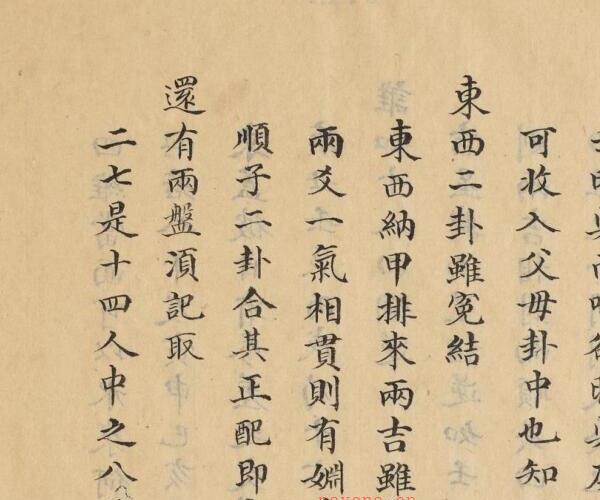 可收入父母卦中也知
東西二卦雖冤結
東西納甲排來兩吉雖
兩爻一氣相貫則有婣
順子二卦合其正配即
還有兩盤須記取
二七是十四人中之八